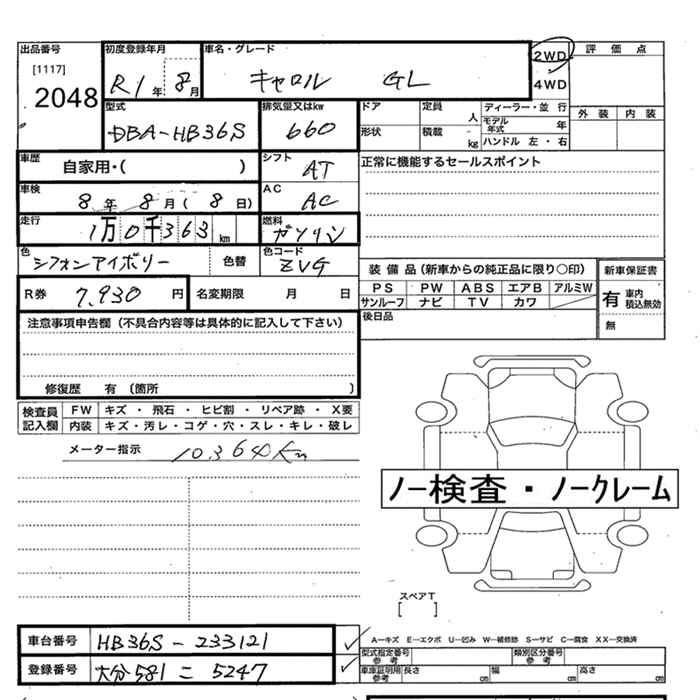 出品番号 初度登録年月 車名・グレード 2WD 評価点
[1117] 2048 R1年 8月 キャロル GL 4WD
型式 排気量又はkw ドア 定員 人 ディーラー・並行 外装 内装
DBA-HB36S 660 形状 積載 kg モデル年式 年
ハンドル 左・右
車歴 自家用・( ) シフト AT 正常に機能するセールスポイント
車検 8年 8月(8日) AC AC
走行 1万0千363km 燃料 ガソリン
色 シフォンアイボリー 色替 色コード ZVG
装備品(新車からの純正品に限り○印) 新車保証書
R券 7,930円 名変期限 月 日 PS PW ABS エアB アルミW 有 車内積込無効
サンルーフ ナビ TV カワ
後日品 無
注意事項申告欄(不具合内容等は具体的に記入して下さい)
修復歴 有 (箇所 )
検査員記入欄 FW キズ・飛石・ヒビ割・リペア跡・X要
内装 キズ・汚レ・コゲ・穴・スレ・キレ・破レ
メーター指示 10,364Km
ノー検査・ノークレーム
スペアT
[ ]
車台番号 HB36S-233121
A−キズ E−エクボ U−凹み W−補修跡 S−サビ C−腐食 XX−交換済
型式指定番号 参考 類別区分番号 参考
登録番号 大分581こ5247 車庫証明用参考 長さ cm 幅 cm 高さ cm